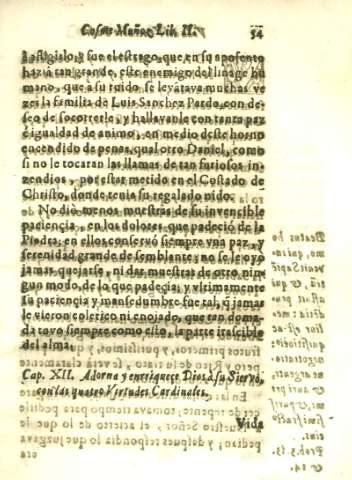 Cosme Muñoz Lib. II. 54
Lastigislo, y fue el estrago, que en su aposento
hazia tan grande, este enemigo del linage hu
mano, que à su ruido se levātava muchas ve
zes la familia de Luis Sanchez Pardo, con de-
seo de socorrerle, y hallavanle con tanta paz
è igualdad de animo, en medio deste horno
encendido de penas, qual otro Daniel, como
si no le tocaran las llamas de tan furiosos in-
zendios, por estar metido en el Costado de
Christo, donde tenia su regalado nido.
No diò menos muestras de su invencible
paciencia, en los dolores que padeciò de la
Piedra; en ellos conservò siempre vna paz, y
serenidad grande de semblante; no se le oyò
jamas quejarse, ni dar muestras de otro nin-
gun modo, de lo que padecia; y vltimamente
su paciencia y mansedumbre fue tal, q̃ jamas
le vieron colerico ni enojado, que tan doma-
da tuvo siempre como esto, la parte irascible
del alma.
Cap. XII. Adorna y enriqueze Dios à su Siervo,
con las quatro Virtudes Cardinales.
Vida